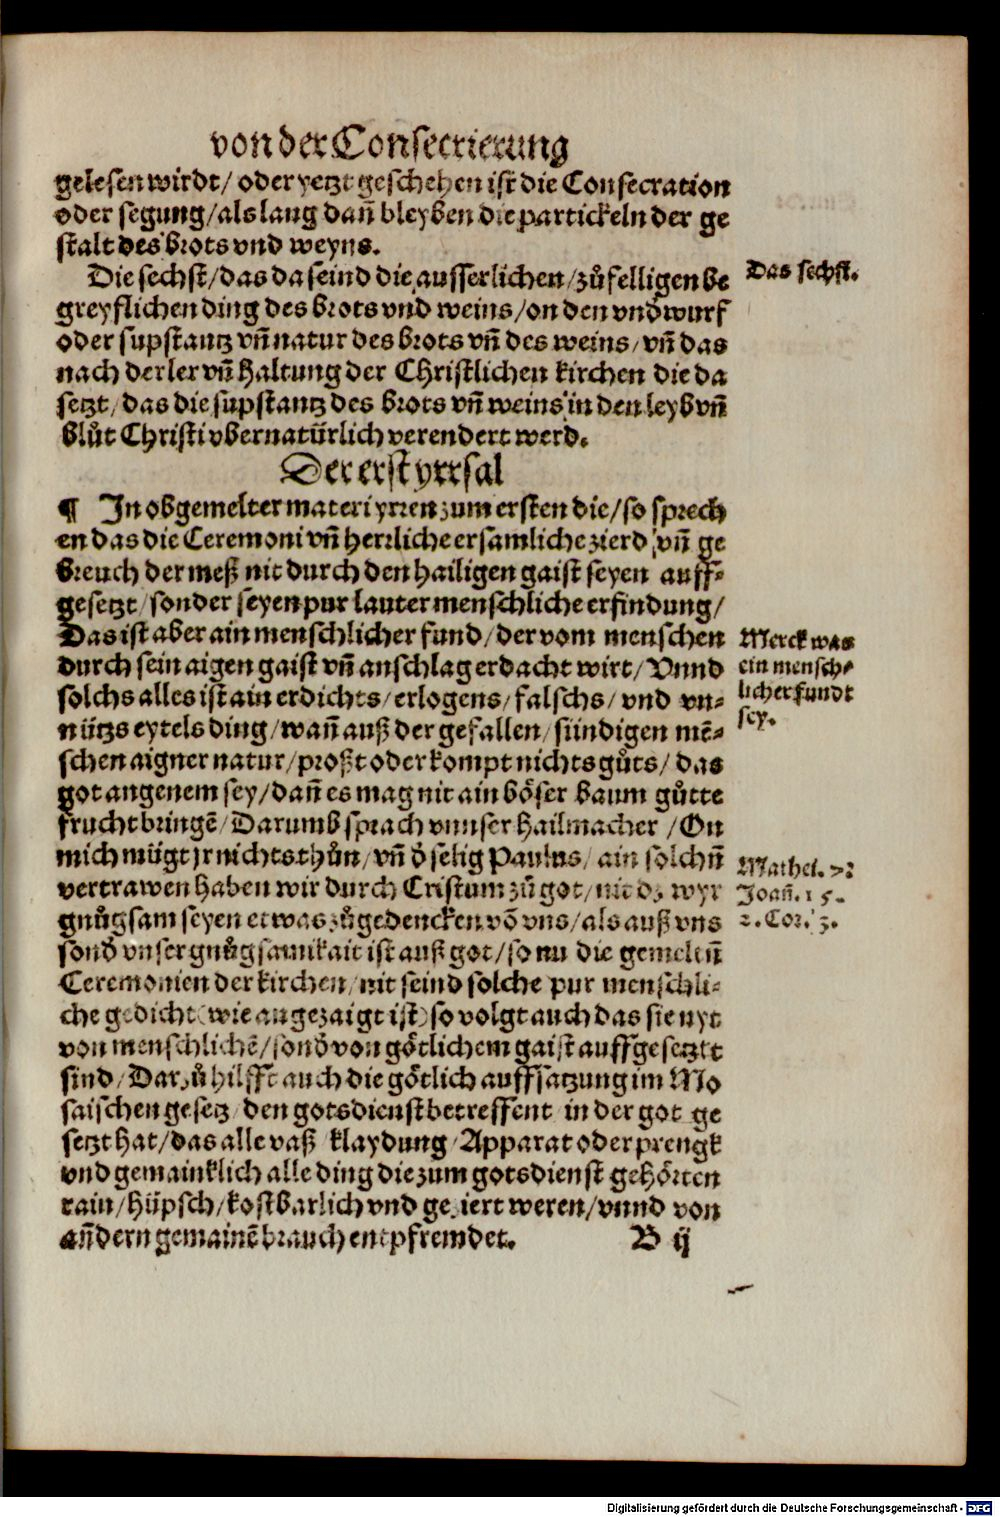 von der Consecrierung
gelesen wirdt/ oder yetzt geschehen ist die Consecration
oder segung/als lang dañ bleyben die partickeln der ge
stalt des brots vnd weyns.
Die sechst/das da seind die ausserlichen/zůfelligen be
greyflichen ding des brots vnd weins/on den vndwurf
oder supstantz vñ natur des brots vñ des weins/vñ das
nach der ler vñ haltung der Christlichen kirchen die da
setzt/das die supstantz des brots vñ weins in den leyb vñ
blůt Christi vbernatürlich verendert werd.
Das sechst.
Der erst yrrsal
¶ In obgemelter materi yrren zum ersten die/so sprech
en das die Ceremoni vñ herrliche ersamliche zierd/vñ ge
breuch der meß nit durch den hailigen gaist seyen auff-
gesetzt/sonder seyen pur lauter menschliche erfindung/
Das ist aber ain menschlicher fund/der vom menschen
durch sein aigen gaist vñ anschlag erdacht wirt/Vnnd
solchs alles ist ain erdichts/erlogens/falschs/vnd vn-
nützs eytels ding/wañ auß der gefallen/sündigen mē-
schen aigner natur/proßt oder kompt nichts gůts/das
got angenem sey/dañ es mag nit ain böser baum gůtte
frucht bringē/Darumb sprach vnnser Hailmacher/On
mich mügt jr nichts thůn/vñ d̕ selig Paulus/ain solchñ
vertrawen haben wir durch Cristum zů got/nit dz wyr
gnůgsam seyen etwas zů gedencken vō vns/als auß vns
sond̕ vnser gnůgsamkait ist auß got/so nu die gemeltñ
Ceremonien der kirchen/nit seind solche pur menschli-
che gedicht (wie angezaigt ist) so volgt auch das sie nyt
von menschlichē/sond̕ von götlichem gaist auffgesetzt
sind/Darzů hilfft auch die götlich auffsatzung im Mo
saischen gesetz/den gotsdienst betreffent in der got ge
setzt hat/das alle vaß klaydung/Apparat oder prengk
vnd gemainklich alle ding die zum gotsdienst gehörten
rain/hüpsch/kostbarlich vnd geziert weren/vnnd von
añdern gemainē brauch entpfremdet.
Merck was
ein mensch-
licher fundt
sey.
Mathei. 7.
Joañ. 15.
2. Cor. 3.
B ij
Digitalisierung gefördert durch die Deutsche Forschungsgemeinschaft - DFG